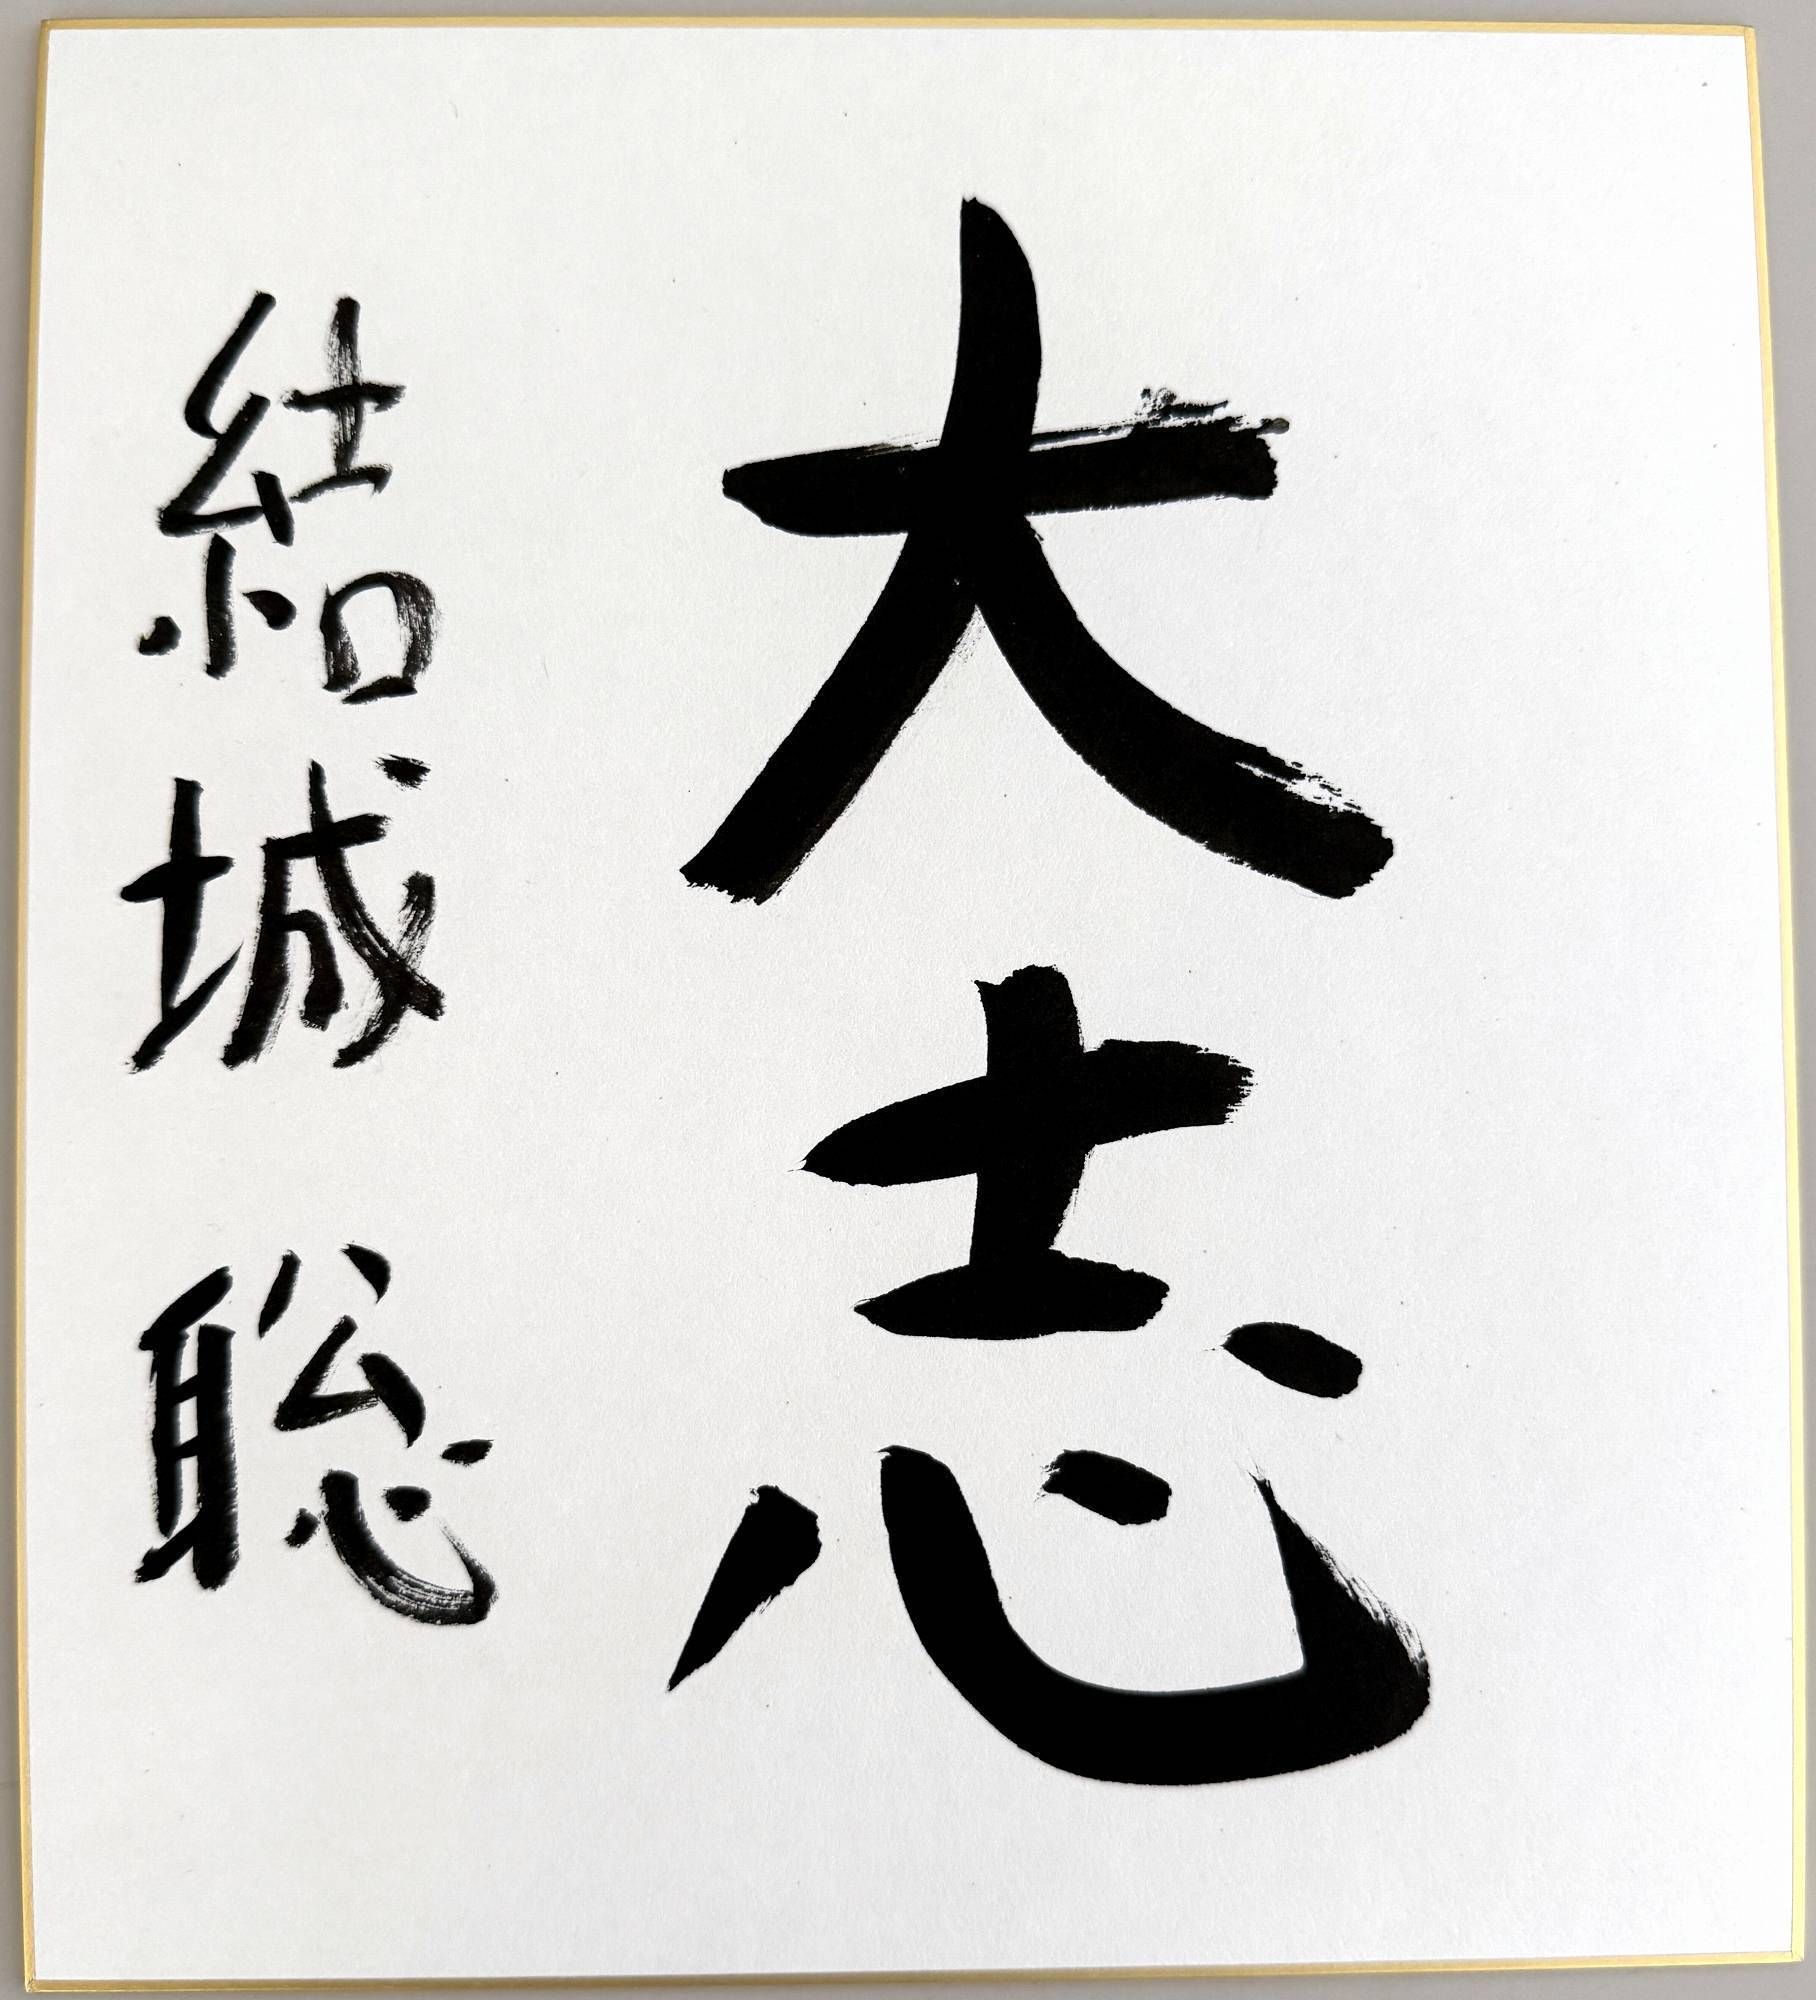 大志
結城聡